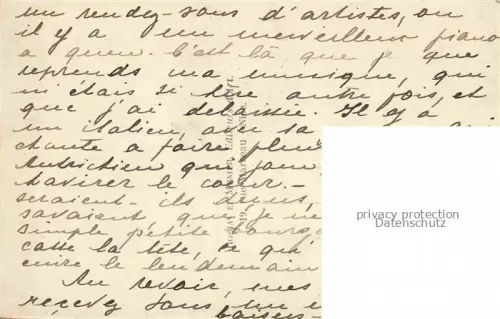 un rendez-vous d'artistes, ou
il y a un merveilleux piano
a queue. C'est là que je
reprends ma musique, qui
m'était si chère autre fois, et
que j'ai délaissée. Il y a
un italien, avec sa
chante a faire pleu
Autrichien qui joue
chavirer le coeur.-
seraient-ils déçus,
savaient, que je ne
simple p'tite bourg
casse la tête, ce qui
cuire le lendemain
Au revoir, mes
recevez tous un
baisers-
privacy protection
Datenschutz